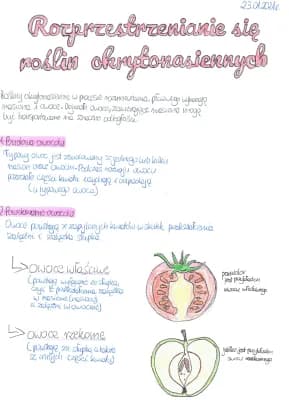 23.01.2021r.
Rozprzestrzenianie się
roślin okrytonasiennych
Rośliny okrytonasienne w procesie rozmnażania płciowego wytwarzają
nasiona i owoce. Dojrzałe owoce, zawierające nasiona mogą
być transportowane na znaczne odległości.
1. Budowa owocu
Typowy owoc jest zbudowany z jednego lub kilku
nasion oraz owocni. Podczas rozwoju owocu
pozostałe części kwiatu usychają i odpadają
(u typowego owocu)
2. Powstawanie owocu
Owoce powstają z zapylonych kwiatów w skutek przekształcenia
zalążni i zalążka słupka.
owoce właściwe
(powstają wyłącznie ze słupka,
czyli z przekształcenia zalążka
w nasiona
a zalążni w owocnie)
pomidor
jest przykładem
owocu właściwego
owoce rzekome
(powstają ze słupka, a także
z innych części kwiatu)
jabłko jest przykładem
owocu rzekomego